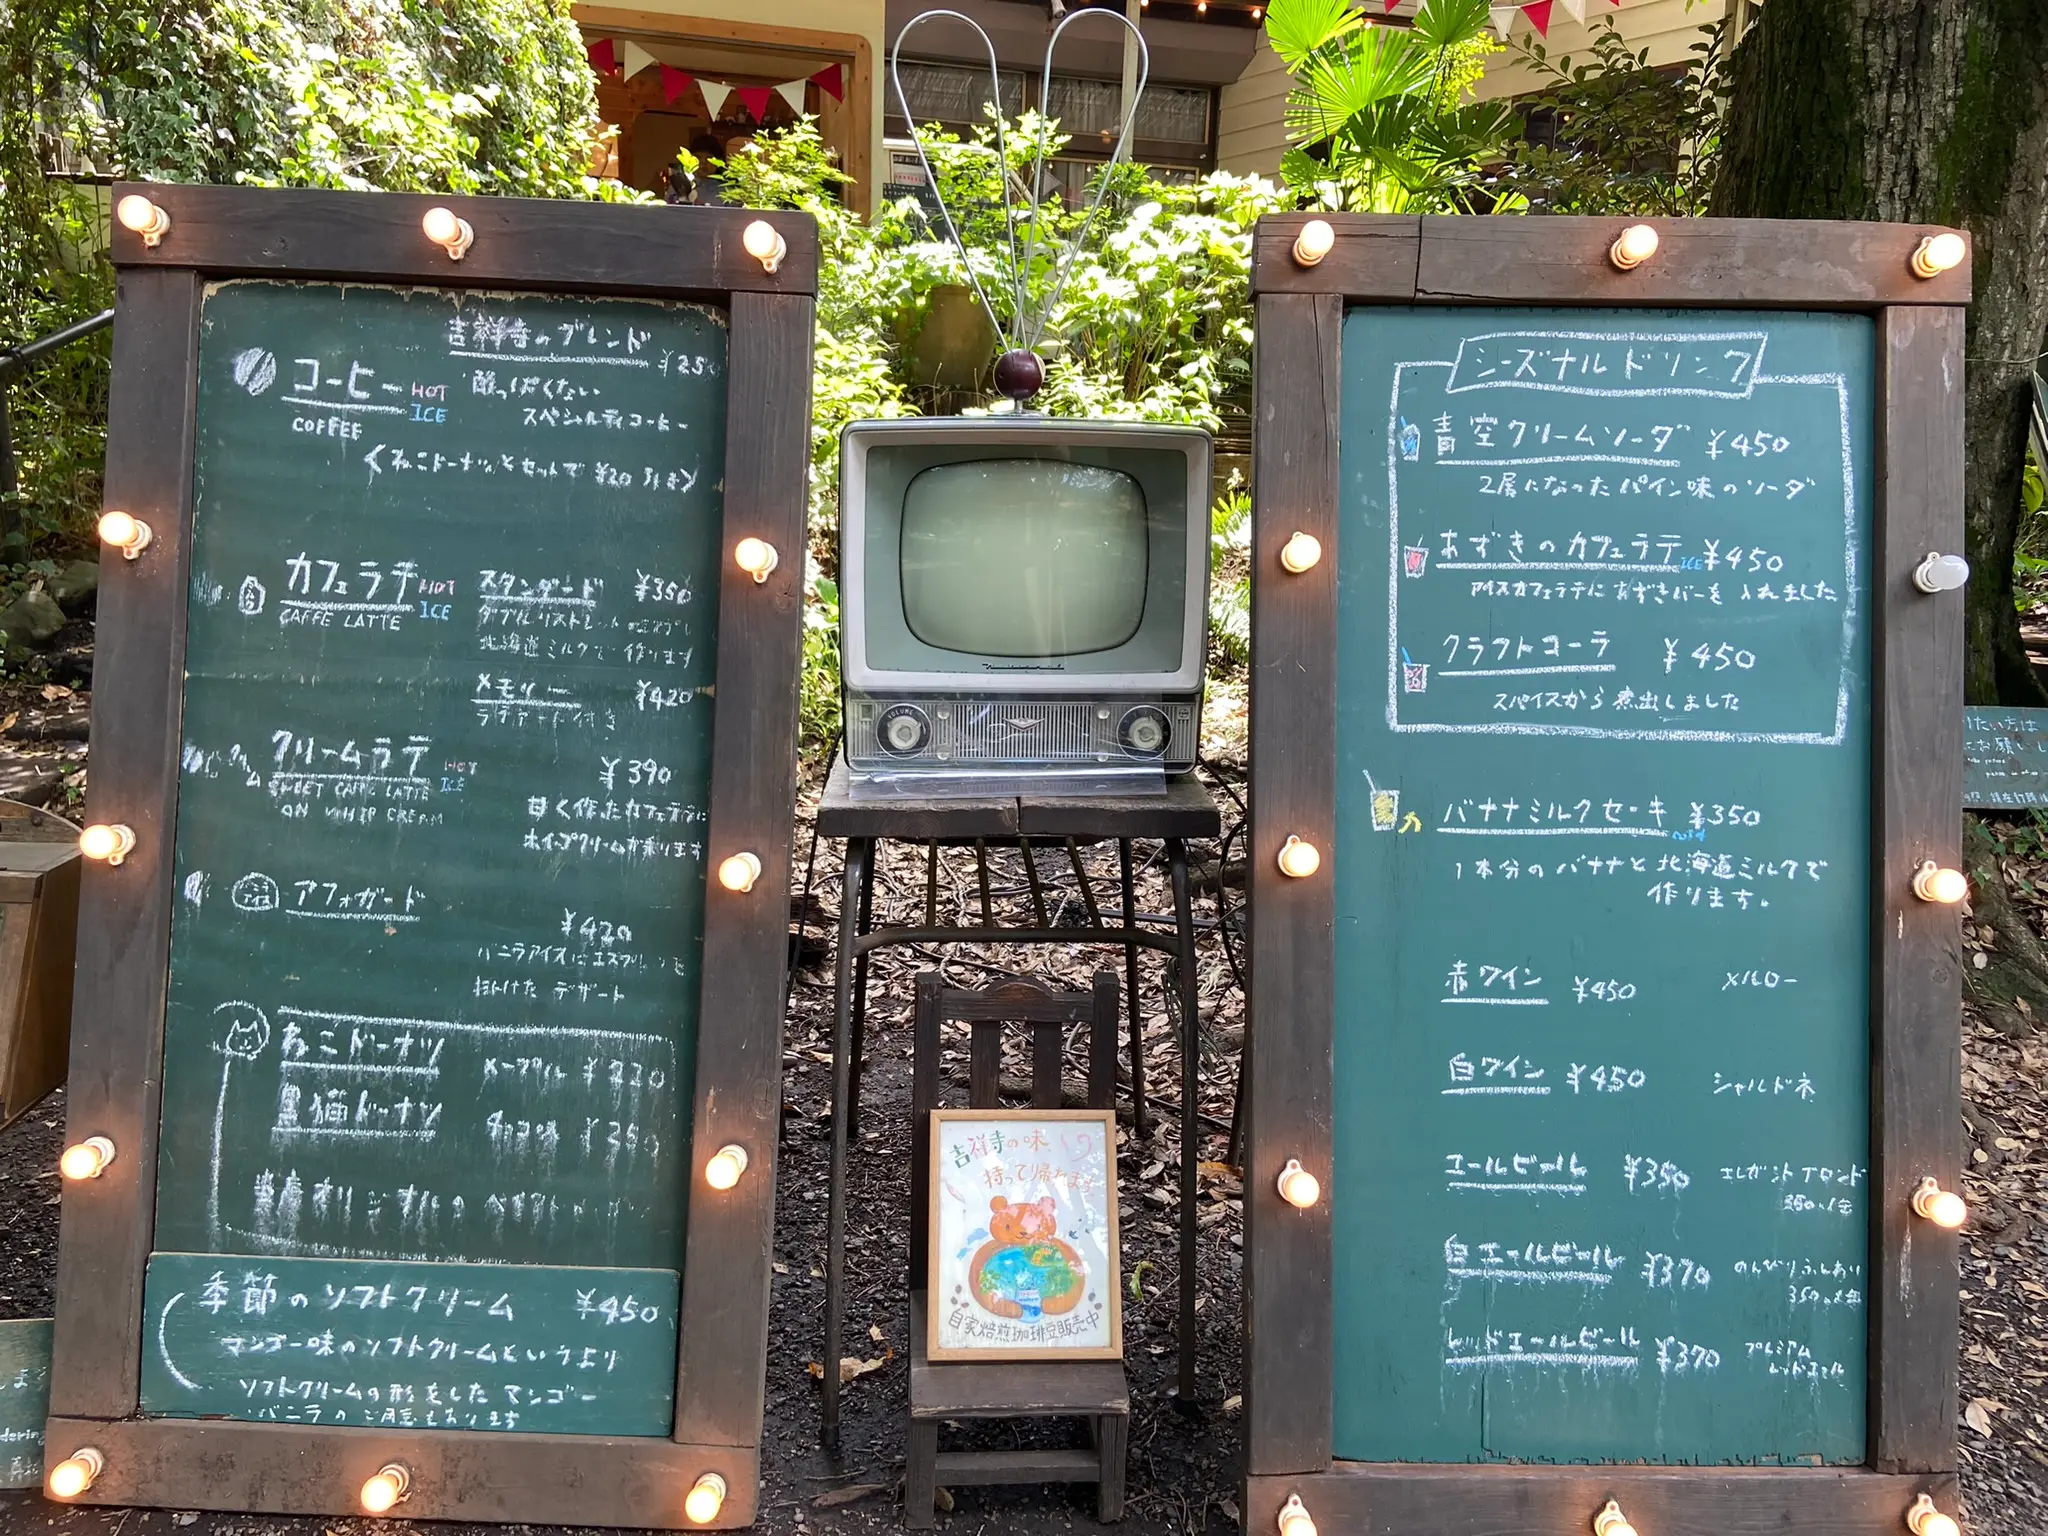 吉祥寺のブレンド
コーヒー HOT ICE
¥25
酸っぱくない
スペシャルティコーヒー
COFFEE
〈ねこドーナッツとセットで ¥20引き〉
カフェラテ HOT ICE
CAFFE LATTE
スタンダード ¥350
北海道ミルクで作ります
¥420
ラテアート付き
クリームラテ HOT ICE
SWEET CAFFE LATTE
ON WHIP CREAM
¥390
甘く作ったカフェラテに
ホイップクリームが乗ります
アフォガード
¥420
バニラアイスにエスプレッソを
掛けた デザート
ねこドーナツ メープル ¥220
黒猫ドーナツ
季節のソフトクリーム ¥450
マンゴー味のソフトクリームというより
ソフトクリームの形をしたマンゴー
バニラのご用意もあります
VOLUME
吉祥寺の味
持って帰れます
自家焙煎珈琲豆販売中
シーズナルドリンク
青空クリームソーダ ¥450
2層になったパイン味のソーダ
あずきのカフェラテ ICE ¥450
アイスカフェラテにあずきバーを入れました
クラフトコーラ ¥450
スパイスから煮出しました
バナナミルクセーキ ¥350
1本分のバナナと北海道ミルクで
作ります。
赤ワイン ¥450 メルロー
白ワイン ¥450 シャルドネ
エールビール ¥350 エレガントブロンド
白エールビール ¥370
レッドエールビール ¥370 プレミアム
レッドエール